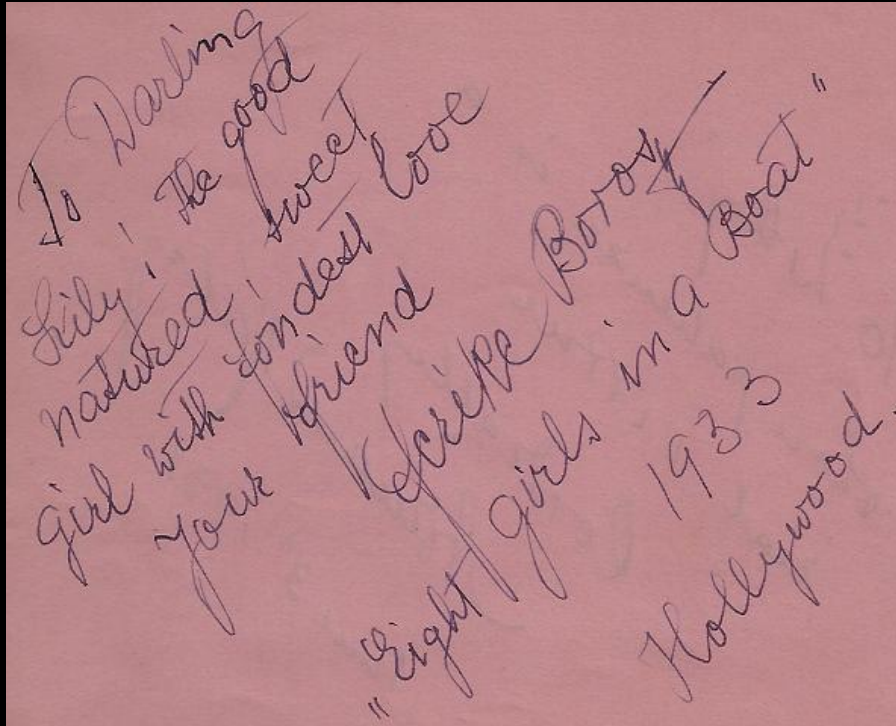 To Darling
Lily! The good
natured, sweet
girl with fondest love
your friend
Ferike Boros
"Eight girls in a Boat"
1933
Hollywood